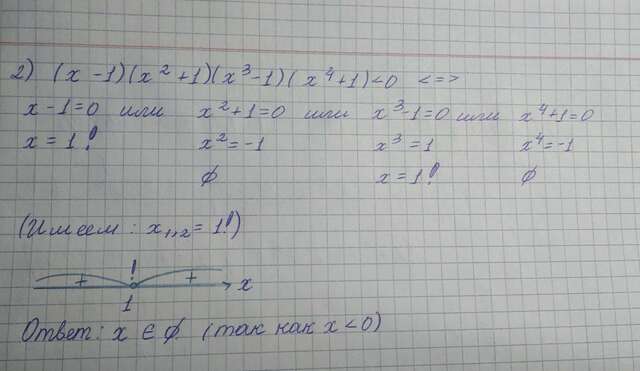 2) (x - 1)(x² + 1)(x³ - 1)(x⁴ + 1) < 0 <=>
x - 1 = 0 или x² + 1 = 0 или x³ - 1 = 0 или x⁴ + 1 = 0
x = 1! x² = -1 x³ = 1 x⁴ = -1
∅ x = 1! ∅
(Имеем: x₁,₂ = 1!)
!
+ + x
1
Ответ: x ∈ ∅. (так как x < 0)